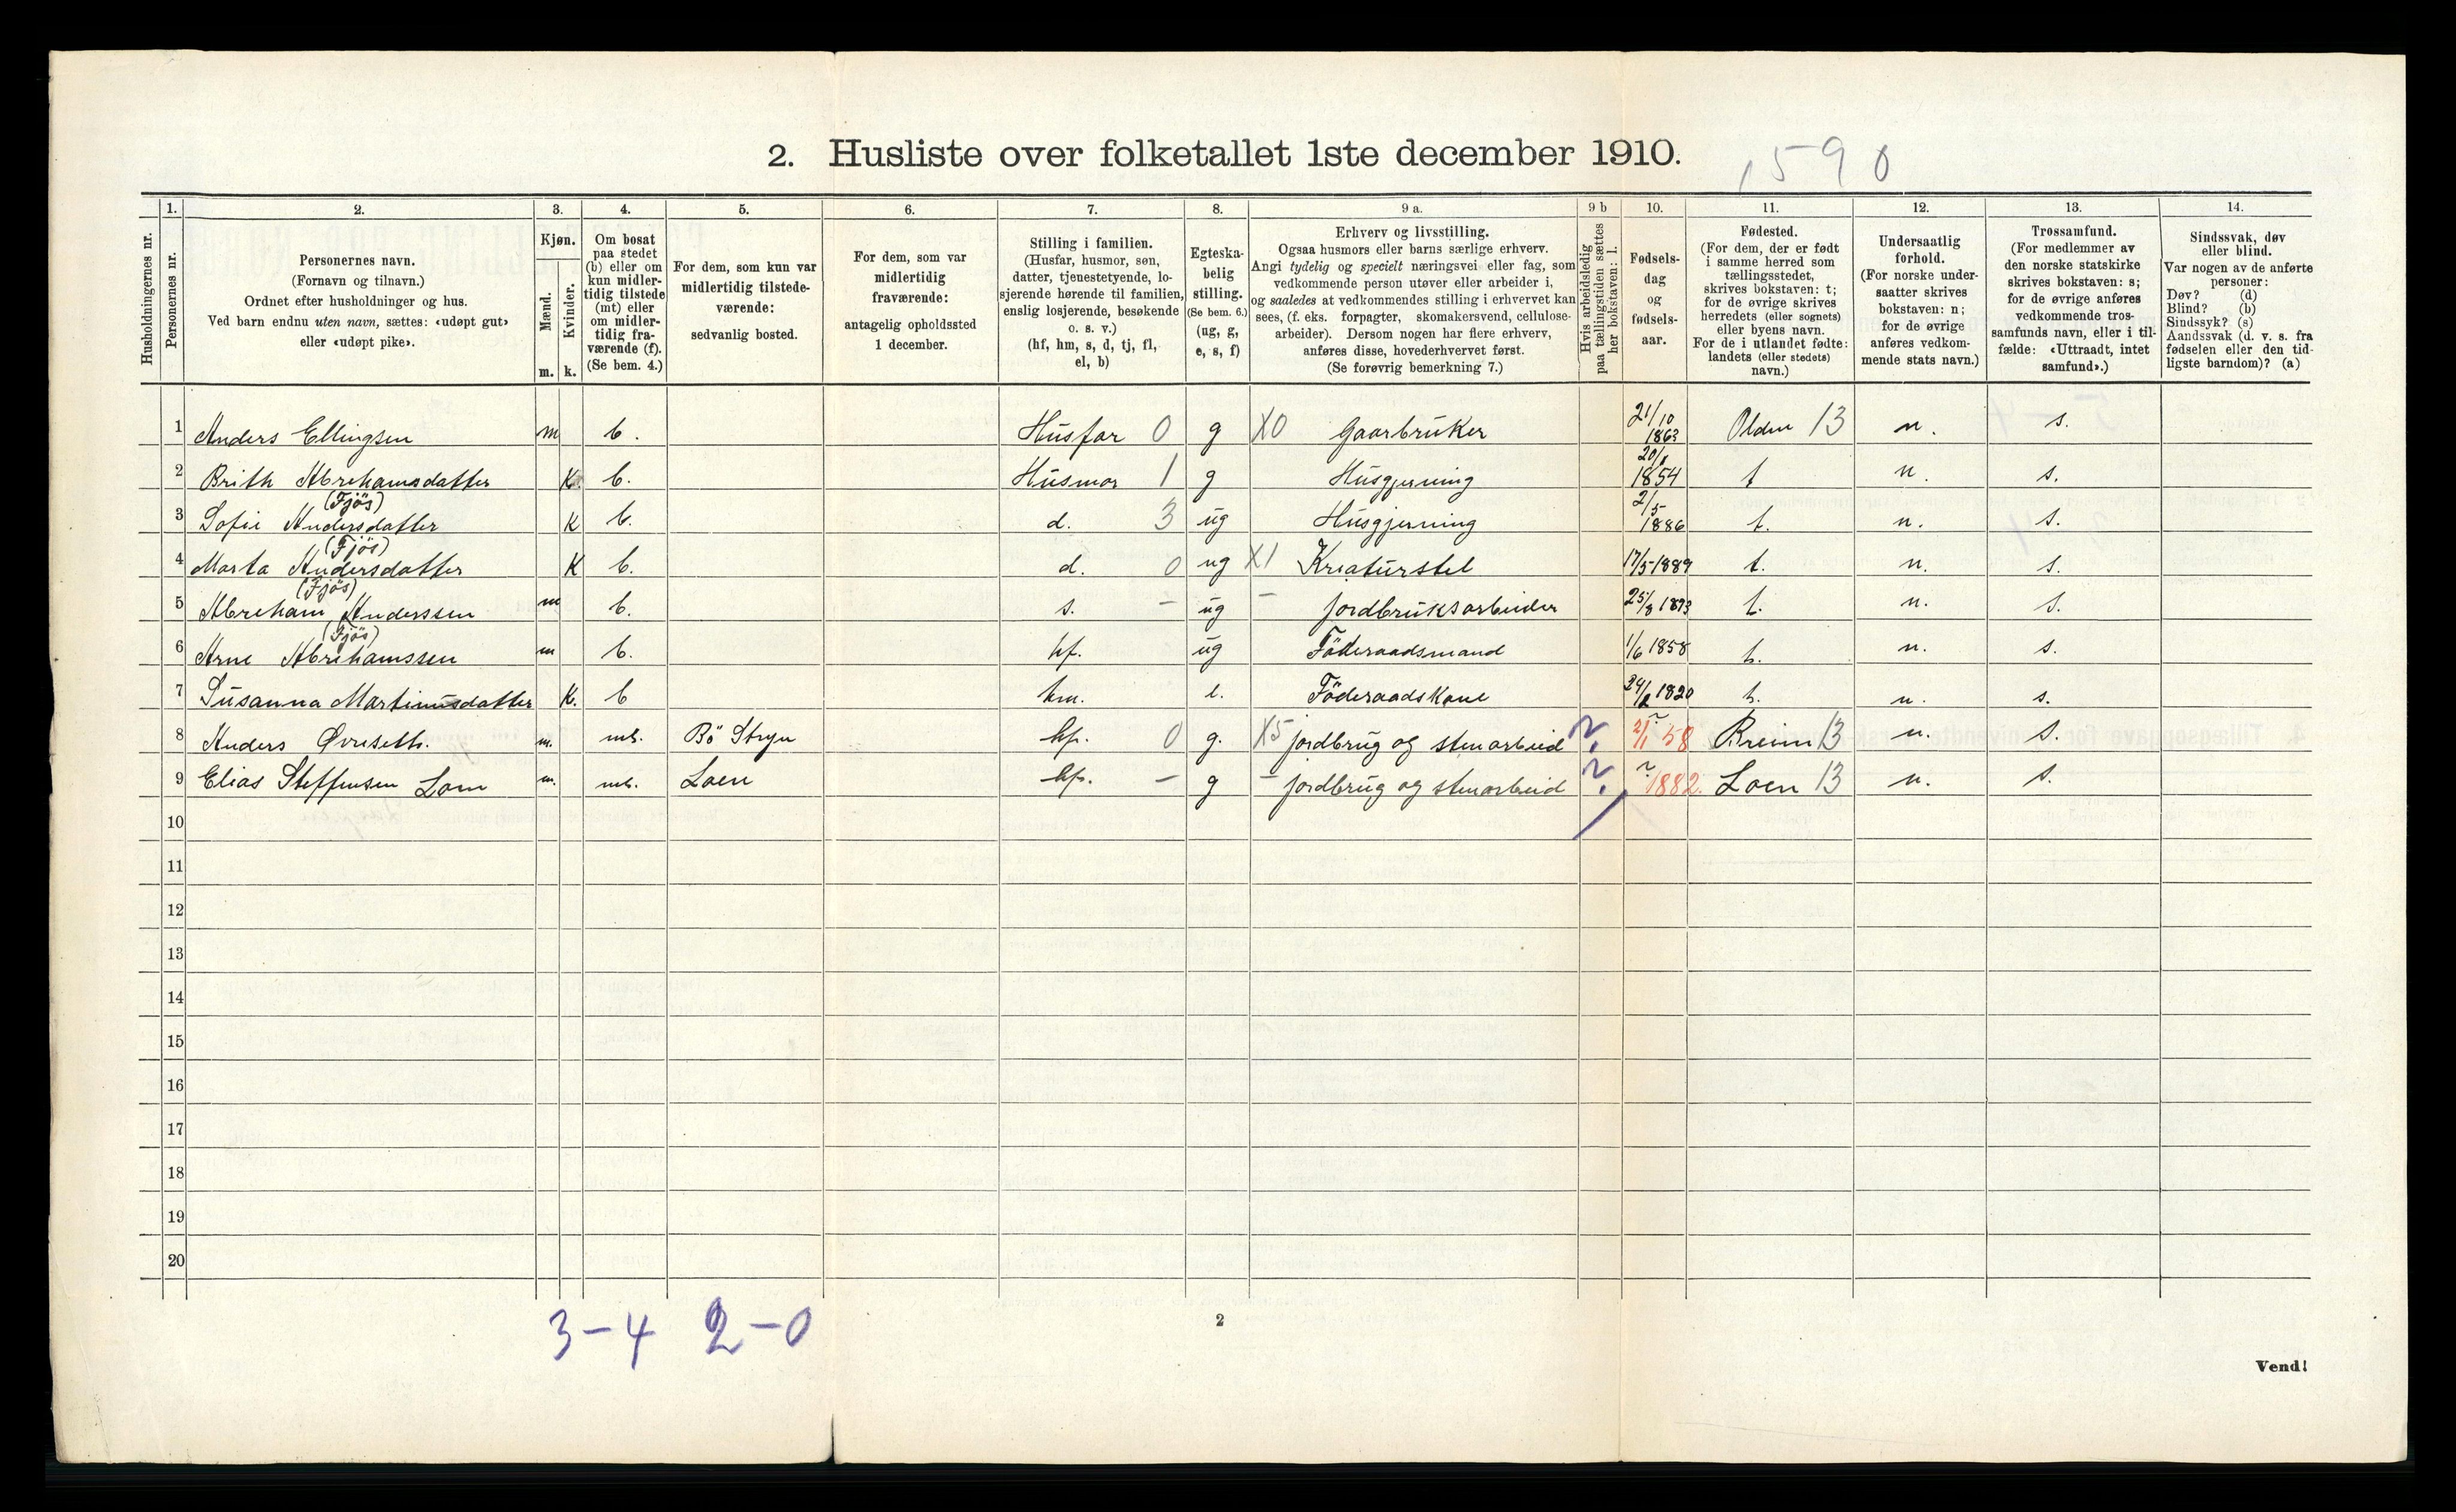 2. Husliste over folketallet 1ste december 1910.
1590
Husholdningernes nr.
1.
Personernes nr.
2.
Personernes navn.
(Fornavn og tilnavn.)
Ordnet efter husholdninger og hus.
Ved barn endnu uten navn, sættes: «udøpt gut»
eller «udøpt pike».
3.
Kjøn.
Mænd.
Kvinder.
m. k.
4.
Om bosat
paa stedet
(b) eller om
kun midler-
tidig tilstede
(mt) eller
om midler-
tidig fra-
værende (f).
(Se bem. 4.)
5.
For dem, som kun var
midlertidig tilstede-
værende:
sedvanlig bosted.
6.
For dem, som var
midlertidig
fraværende:
antagelig opholdssted
1 december.
7.
Stilling i familien.
(Husfar, husmor, søn,
datter, tjenestetyende, lo-
sjerende hørende til familien,
enslig losjerende, besøkende
o. s. v.)
(hf, hm, s, d, tj, fl,
el, b)
8.
Egteska-
belig
stilling.
(Se bem. 6.)
(ug, g,
e, s, f)
9 a.
Erhverv og livsstilling.
Ogsaa husmors eller barns særlige erhverv.
Angi tydelig og specielt næringsvei eller fag, som
vedkommende person utøver eller arbeider i,
og saaledes at vedkommendes stilling i erhvervet kan
sees, (f. eks. forpagter, skomakersvend, cellulose-
arbeider). Dersom nogen har flere erhverv,
anføres disse, hovederhvervet først.
(Se forøvrig bemerkning 7.)
9 b
Hvis arbeidsledig
paa tællingstiden sættes
her bokstaven: l.
10.
Fødsels-
dag
og
fødsels-
aar.
11.
Fødested.
(For dem, der er født
i samme herred som
tællingsstedet,
skrives bokstaven: t;
for de øvrige skrives
herredets (eller sognets)
eller byens navn.
For de i utlandet fødte:
landets (eller stedets)
navn.)
12.
Undersaatlig
forhold.
(For norske under-
saatter skrives
bokstaven: n;
for de øvrige
anføres vedkom-
mende stats navn.)
13.
Trossamfund.
(For medlemmer av
den norske statskirke
skrives bokstaven: s;
for de øvrige anføres
vedkommende tros-
samfunds navn, eller i til-
fælde: «Uttraadt, intet
samfund».)
14.
Sindssvak, døv
eller blind.
Var nogen av de anførte
personer:
Døv? (d)
Blind? (b)
Sindssyk? (s)
Aandssvak (d. v. s. fra
fødselen eller den tid-
ligste barndom)? (a)
1 Anders Ellingsen m b. Husfar 0 g X0 Gaarbruker 21/10 1863 Olden 13 n. s.
2 Brith Abrehamsdatter K b. Husmor 1 g Husgjerning 1854 t n. s.
(Fjös)
3 Sofie Andersdatter K b. d. 3 ug Husgjerning 2/5 1886 t. n. s.
(Fjös)
4 Marta Andersdatter K b. d. 0 ug X1 Kreaturstel 17/5 1889 t. n. s.
(Fjös)
5 Abreham Anderssen m b. s. - ug - jordbruksarbeider 25/8 1893 t. n. s.
(Fjös)
6 Arne Abrehamssen m b. hf. ug Föderaadsmand 1/6 1858 t. n. s.
7 Susanna Martinusdatter K. b hm. e. Föderaadskone 1820 t. n. s.
8 Anders Øvreseth. m. mt. Bö Stryn hf. 0 g. X5 jordbrug og stenarbeid ? 2/1 58 Breim 13 n. s.
9 Elias Steffensen Loen m. mt. Loen hf. - g - jordbrug og stenarbeid ? 1882. Loen 13 n. s.
10
11
12
13
14
15
16
17
18
19
20
3-4 2-0
2
Vend!